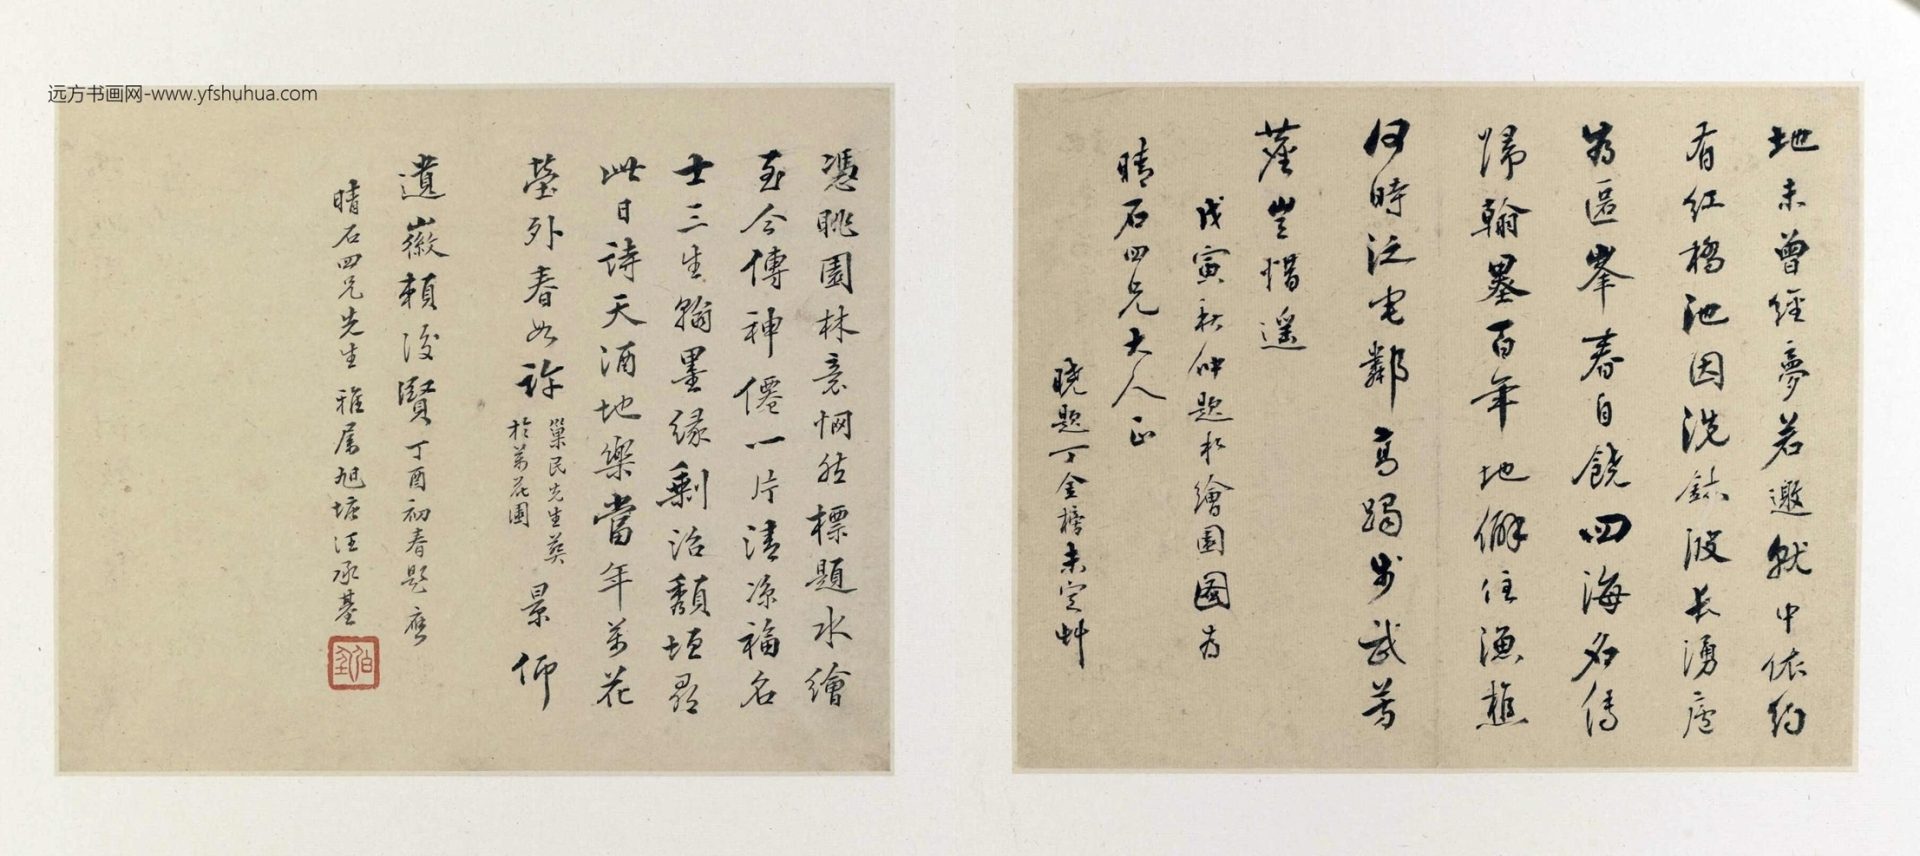 远方书画网-www.yfshuhua.com
地未曾經夢若邀就中依約
有红橋池因洗鉢波長湧廬
為區峯春自饒四海名傳
歸翰墨百年地僻住漁樵
何時泛宅鄰高躅步武芳
塵豈憚遥
戊寅秋仲題水繪園圖為
晴石四兄大人正
曉題丁金榜未定艸
憑眺園林意惘然標題水繪
至今傳神僊一片清涼福名
士三生翰墨缘剩沼頹垣
此日詩天酒地樂當年萬花
塋外春如許
巢民先生葬
於萬花園
景仰
遺徽賴後賢
丁酉初春題應
晴石四兄先生雅屬旭塘汪承基